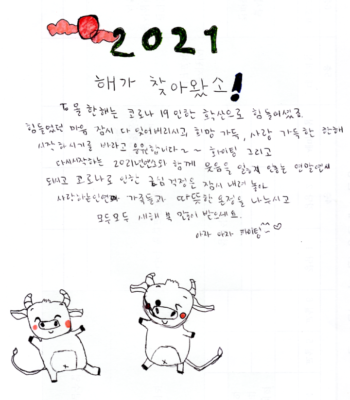 2021
해가 찾아왔소!
올 한해는 코로나 19 인한 확산으로 힘들어했고
힘들었던 마음 잠시 다 잊어버리시고, 희망 가득, 사랑 가득한 한해
시작하시기를 바라고 응원합니다~ 화이팅 그리고
다시시작하는 2021년엔 함께 웃음을 잃지 않는
되시고 코로나로 인한 근심 걱정은 잠시 내려 놓아
사랑하는 가족들과 따뜻한 온정을 나누시고
모두모두 새해 복 많이 받으세요.
아자 아자 파이팅^^♡